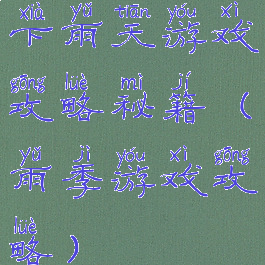 xià yǔ tiān yóu xì
下雨天游戏
gōng lüè mì jí
攻略秘籍（
yǔ jì yóu xì gōng
雨季游戏攻
lüè
略）